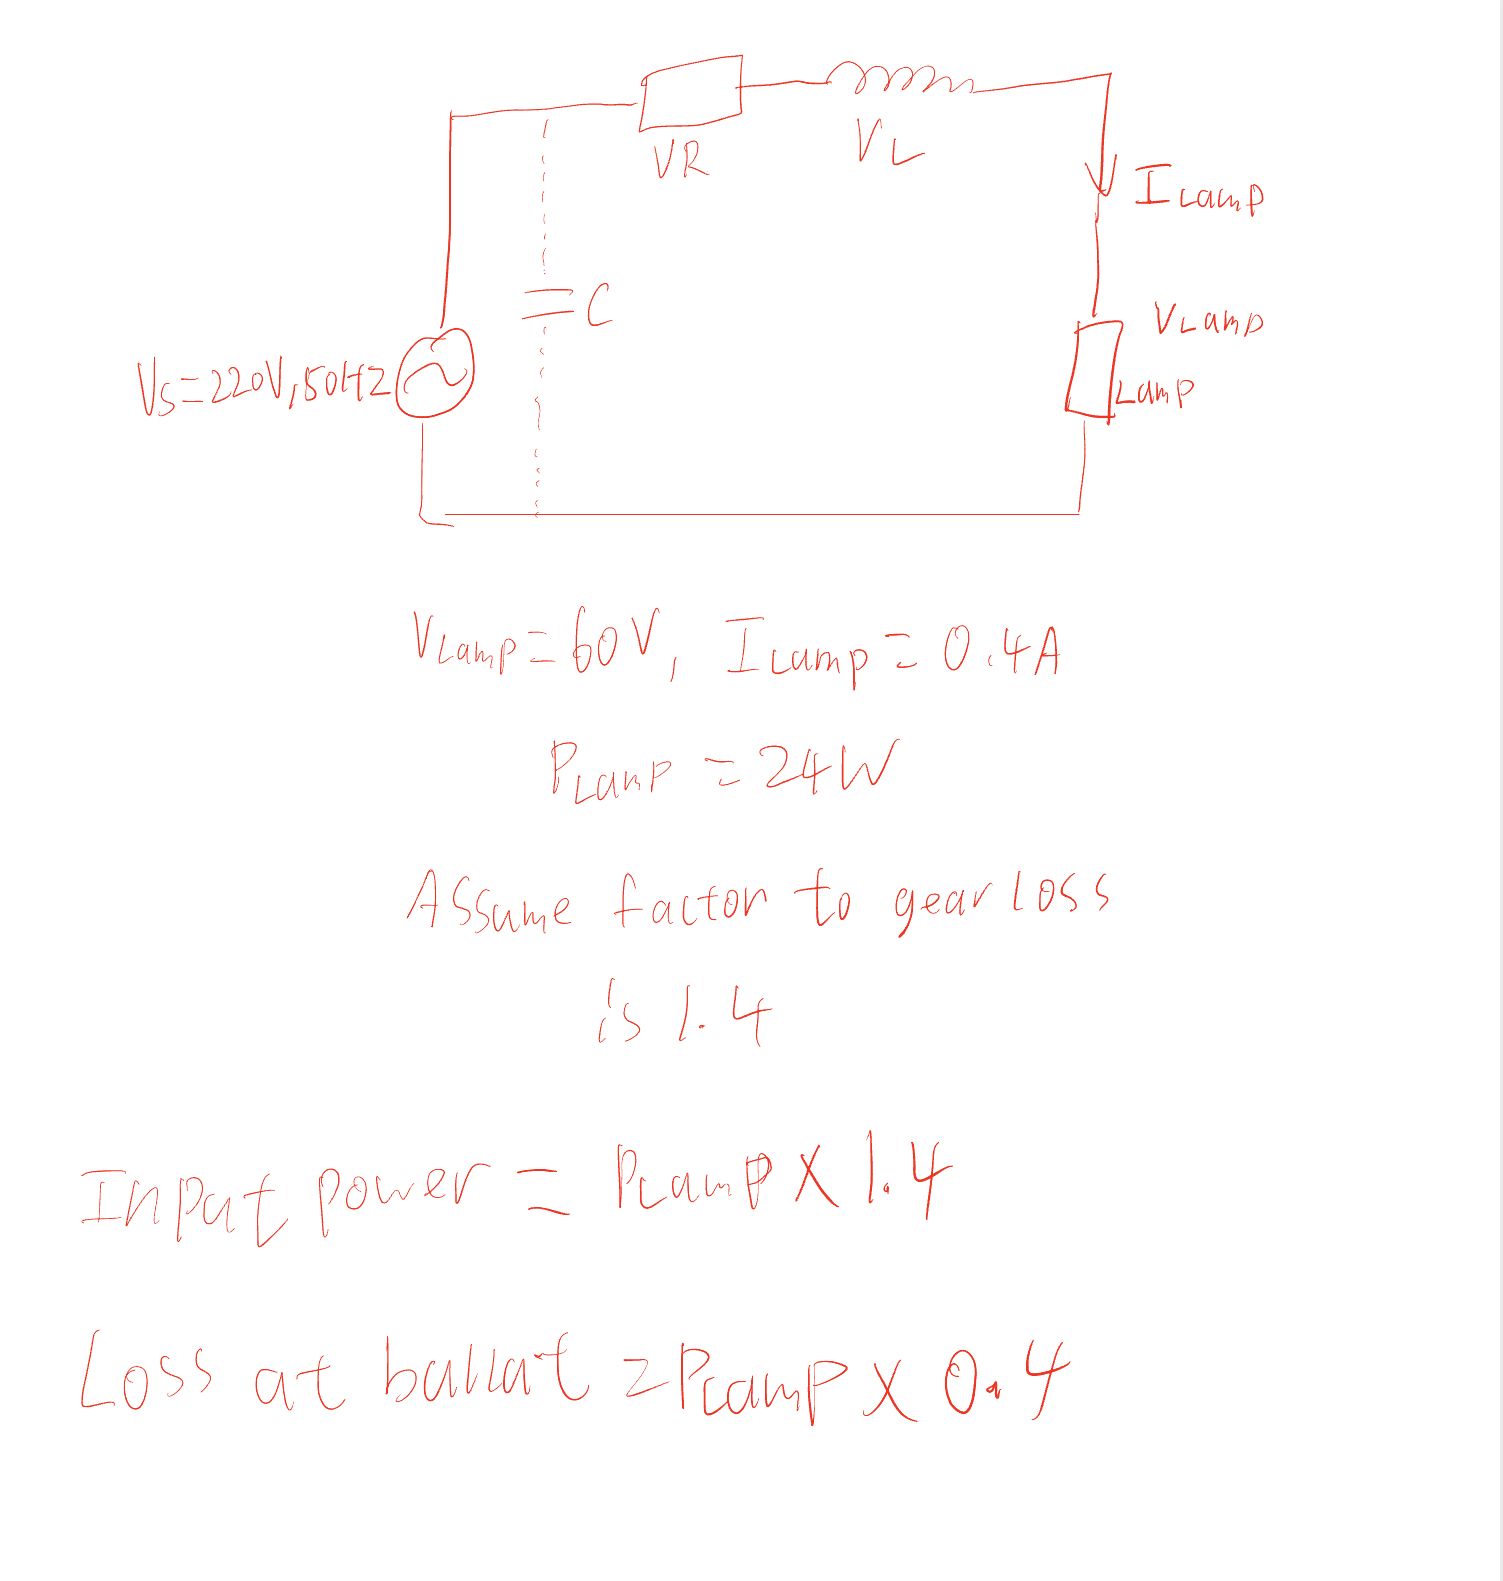 VR
VL
ILamp
C
VLamp
Vs=220V,50HZ
Lamp
VLamp=60V, ILamp=0.4A
PLamp=24W
Assume factor to gear loss
is 1.4
Input power = PLamp X 1.4
Loss at ballat = PLamp X 0.4